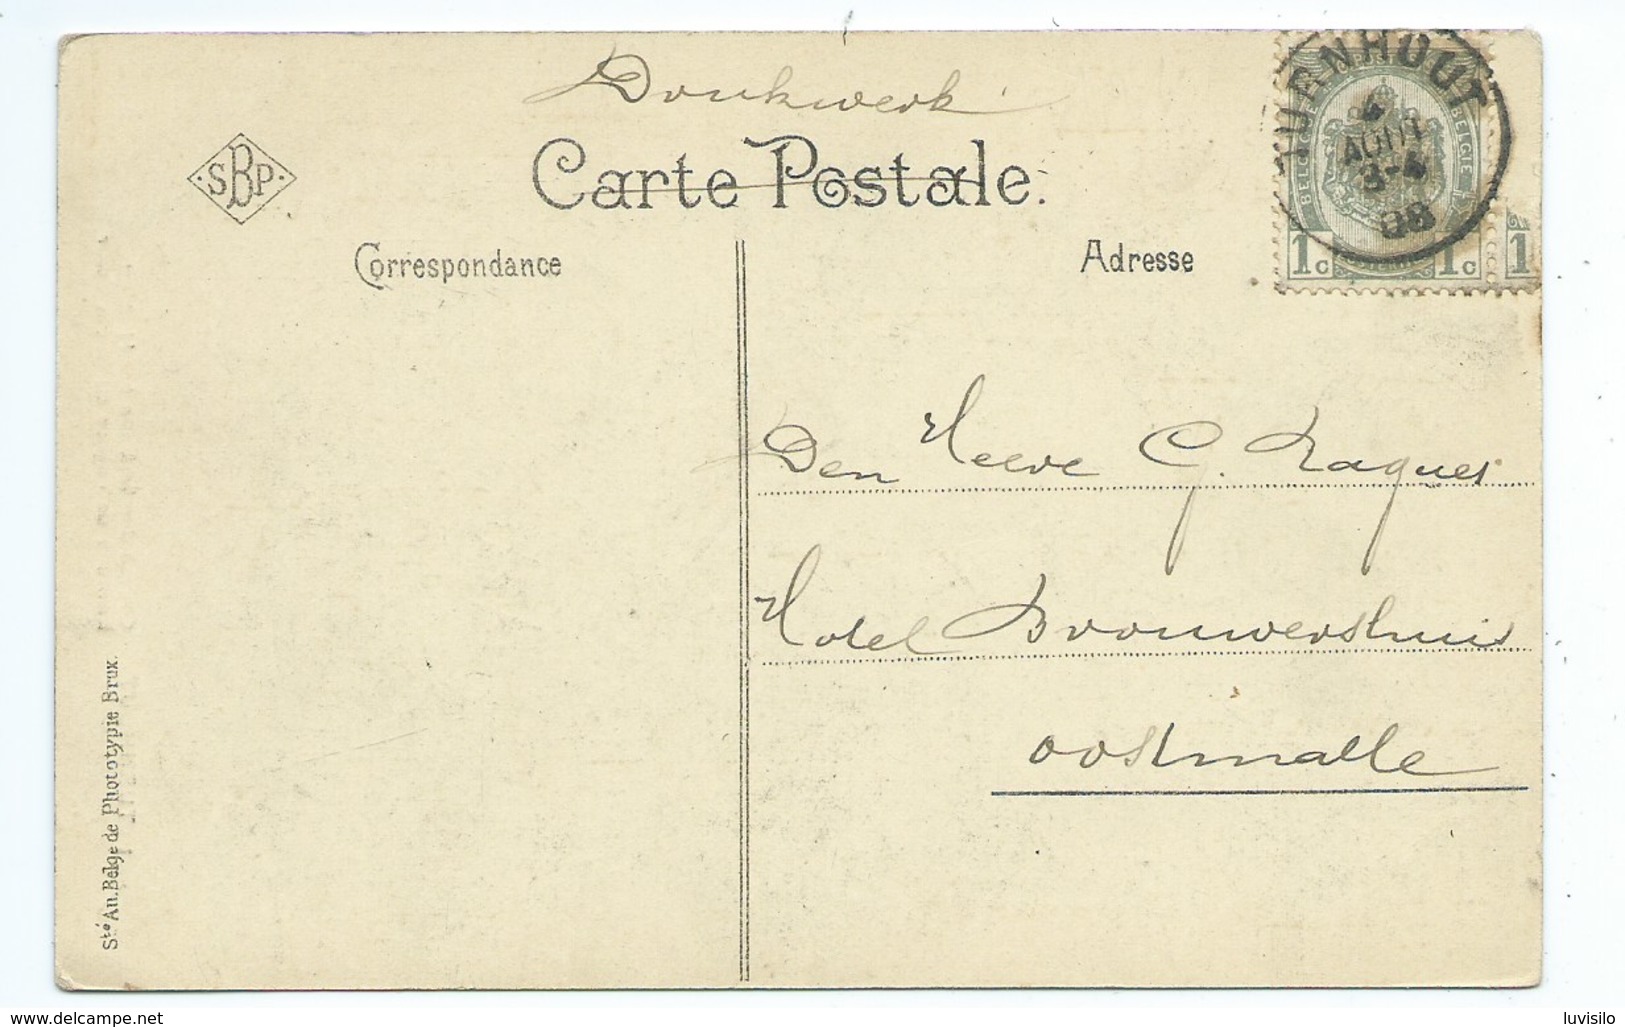 Drukwerk
Carte Postale.
SBP
TURNHOUT
4
AOUT
08
BELGIE
BELGIQUE
1c 1c 1
Correspondance
Adresse
Den Heere G.
Hotel Brouwershuis
Oostmalle
Sté An. Belge de Phototypie Brux.
www.delcampe.net
luvisilo